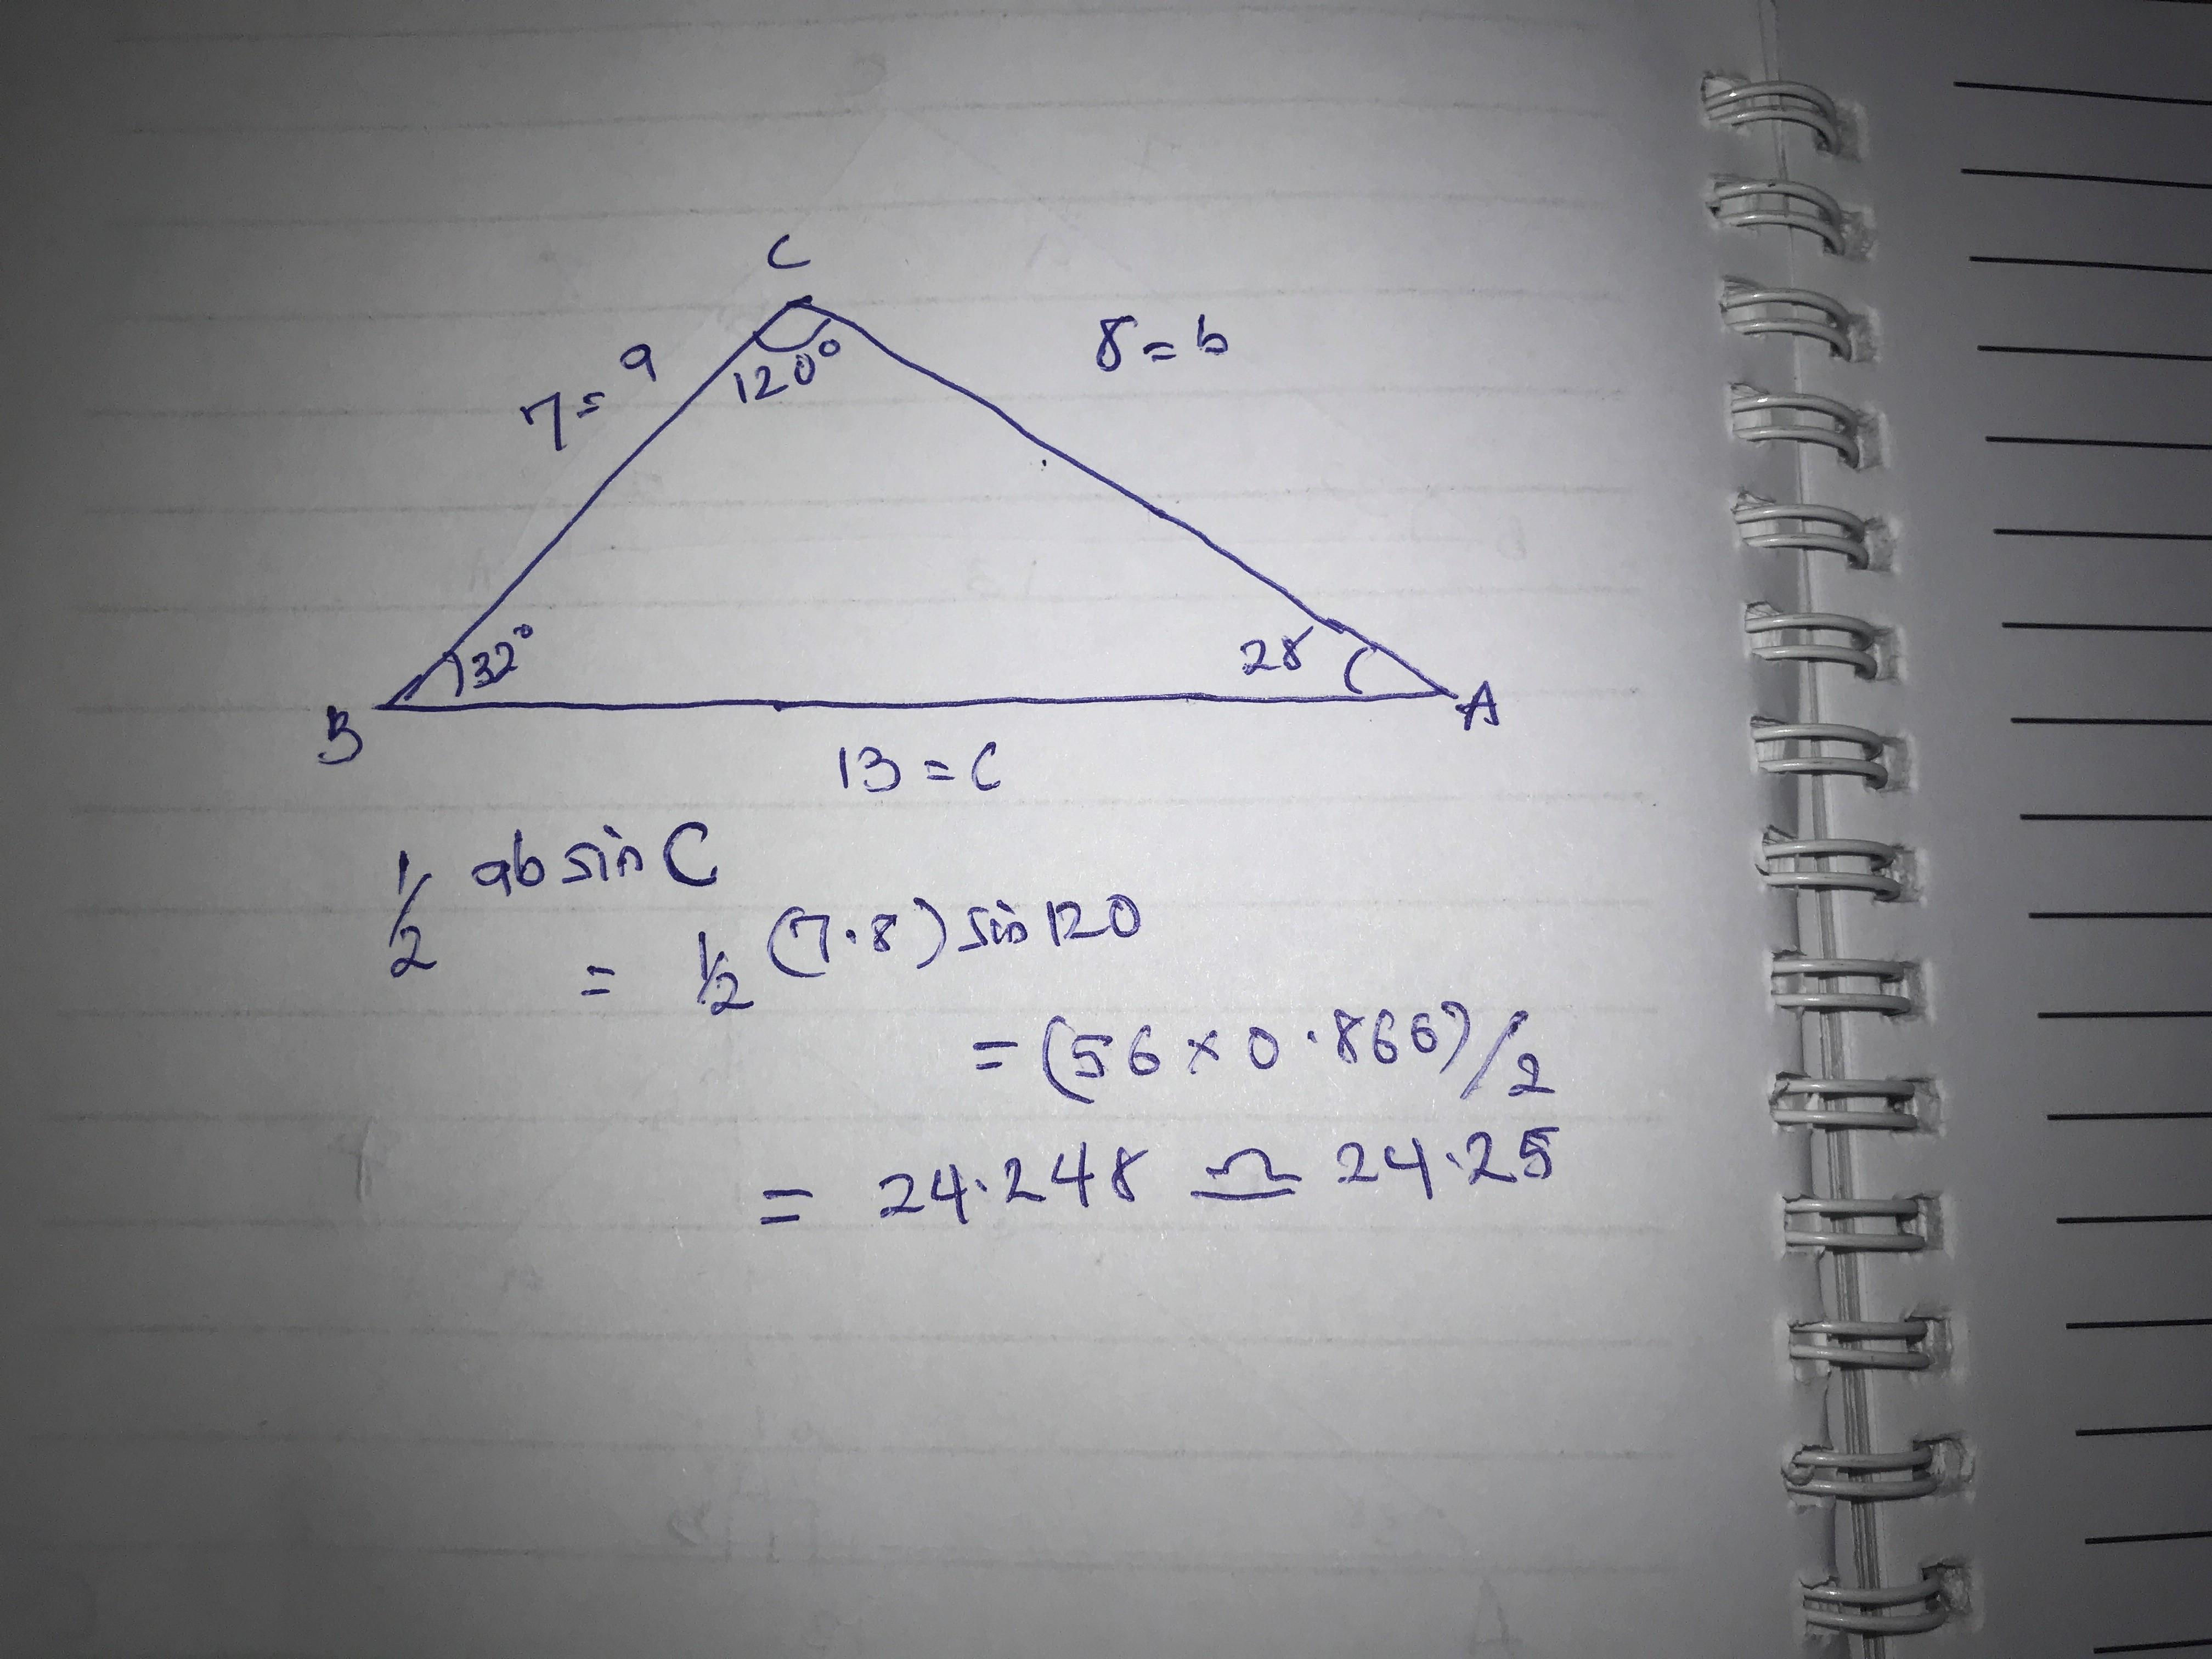 C
7 = a
8 = b
120°
32°
28
B
A
13 = C
1/2 ab sin C
= 1/2 (7·8) sin 120
= (56 × 0·866)/2
= 24·248 ≏ 24·25